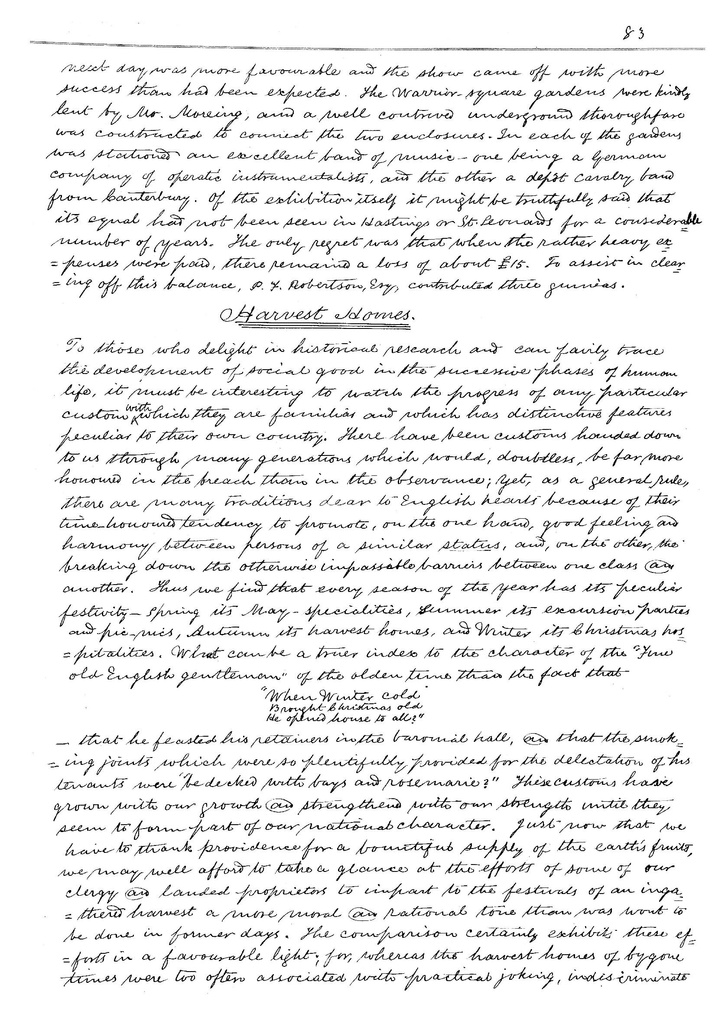 83
next day was more favourable and the show came off with more
success than had been expected. The Warrior-square gardens were kindly
lent by Mr. Moreing, and a well contrived underground thoroughfare
was constructed to connect the two enclosures. In each of the gardens
was stationed an excellent band of music - one being a German
company of operatic instrumentalists, and the other a depôt cavalry band
from Canterbury. Of the exhibition itself it might be truthfully said that
its equal had not been seen in Hastings or St. Leonards for a considerable
number of years. The only regret was that when the rather heavy ex
=penses were paid, there remained a loss of about £15. To assist in clear
=ing off this balance, P. F. Robertson, Esq, contributed three guineas.
Harvest Homes.
To those who delight in historical research and can fairly trace
the development of social good in the successive phases of human
life, it must be interesting to watch the progress of any particular
custom with which they are familiar and which has distinctive features
peculiar to their own country. There have been customs handed down
to us through many generations which would, doubtless, be far more
honoured in the breach than in the observance; yet, as a general rule,
there are many traditions dear to English hearts because of their
time-honoured tendency to promote, on the one hand, good feeling and
harmony between persons of a similar status, and, on the other, the
breaking down the otherwise impassable barriers between one class an
another. Thus we find that every season of the year has its peculiar
festivity - Spring its May-specialities, Summer its excursion parties
and pic-nics, Autumn its harvest homes, and Winter its Christmas hos
=pitalities. What can be a truer index to the character of the "Fine
old English gentleman" of the olden time than the fact that
"When Winter cold
Brought Christmas old
He opened house to all?"
- that he feasted his retainers in the baronial hall, an that the smok=
=ing joints which were so plentifully provided for the delectation of his
tenants were "be decked with bays and rosemarie?" These customs have
grown with our growth an strengthend with our strength until they
seem to form part of our national character. Just now that we
have to thank providence for a bountiful supply of the earth's fruits,
we may well afford to take a glance at the efforts of some of our
clergy an landed proprietors to impart to the festivals of an inga
=thered harvest a more moral an rational tone than was wont to
be done in former days. The comparison certainly exhibits these ef=
=forts in a favourable light; for, whereas the harvest homes of bygone
times were too often associated with practical joking, indiscriminate